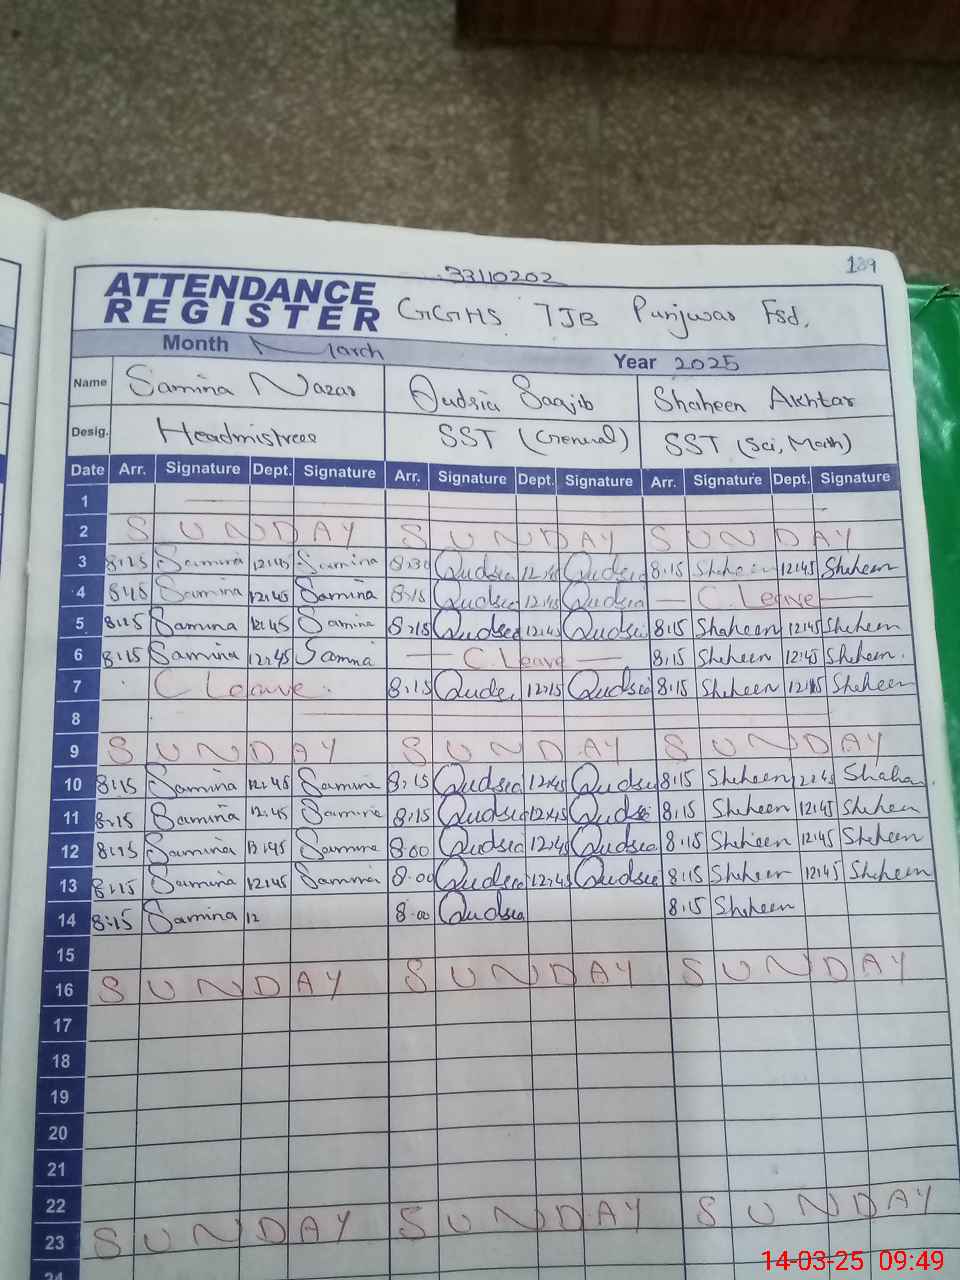 33110202
139
ATTENDANCE REGISTER GGHS 7JB Punjwar Fsd.
Month March Year 2025
Name Samina Nazar Qudsia Saajib Shaheen Akhtar
Desig. Headmistress SST (General) SST (Sci, Math)
Date Arr. Signature Dept. Signature Arr. Signature Dept. Signature Arr. Signature Dept. Signature
1
2 SUNDAY SUNDAY SUNDAY
3 8:15 Samina 12:45 Samina 8:30 Qudsia 12:45 Qudsia 8:15 Shaheen 12:45 Shaheen
4 8:15 Samina 12:45 Samina 8:15 Qudsia 12:45 Qudsia C. Leave
5 8:15 Samina 12:45 Samina 8:15 Qudsia 12:45 Qudsia 8:15 Shaheen 12:45 Shaheen
6 8:15 Samina 12:45 Samina C. Leave 8:15 Shaheen 12:45 Shaheen
7 C Leave. 8:15 Qudsia 12:15 Qudsia 8:15 Shaheen 12:45 Shaheen
8
9 SUNDAY SUNDAY SUNDAY
10 8:15 Samina 12:45 Samina 8:15 Qudsia 12:45 Qudsia 8:15 Shaheen 12:45 Shaheen
11 8:15 Samina 12:45 Samina 8:15 Qudsia 12:45 Qudsia 8:15 Shaheen 12:45 Shaheen
12 8:15 Samina 12:45 Samina 8:00 Qudsia 12:45 Qudsia 8:15 Shaheen 12:45 Shaheen
13 8:15 Samina 12:45 Samina 8:00 Qudsia 12:45 Qudsia 8:15 Shaheen 12:45 Shaheen
14 8:15 Samina 12 8:00 Qudsia 8:15 Shaheen
15
16 SUNDAY SUNDAY SUNDAY
17
18
19
20
21
22
23 SUNDAY SUNDAY SUNDAY
24
14-03-25 09:49